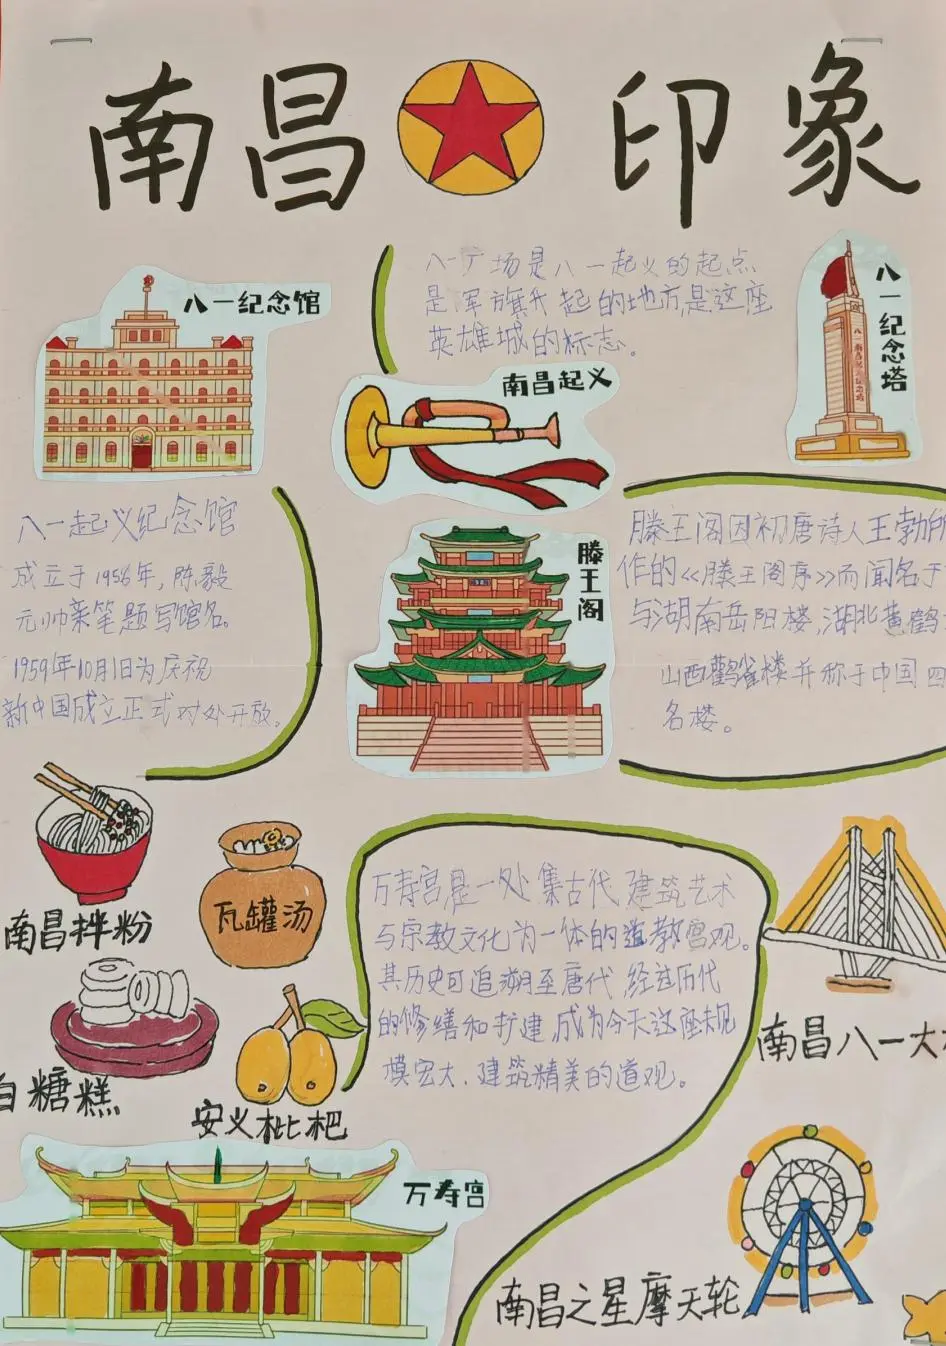 南昌印象
八一纪念馆
八一广场是八一起义的起点
是军旗升起的地方,是这座
英雄城的标志。
八一纪念塔
八一南昌起义纪念塔
南昌起义
八一起义纪念馆
成立于1956年,陈毅
元帅亲笔题写馆名。
1959年10月1日为庆祝
新中国成立正式对外开放。
滕王阁
滕王阁因初唐诗人王勃所
作的《滕王阁序》而闻名于
与湖南岳阳楼,湖北黄鹤
山西鹳雀楼并称于中国四
名楼。
南昌拌粉
瓦罐汤
白糖糕
安义枇杷
万寿宫是一处集古代建筑艺术
与宗教文化为一体的道教宫观。
其历史可追溯至唐代 经过历代
的修缮和扩建,成为今天这座规
模宏大、建筑精美的道观。
南昌八一大
万寿宫
南昌之星摩天轮